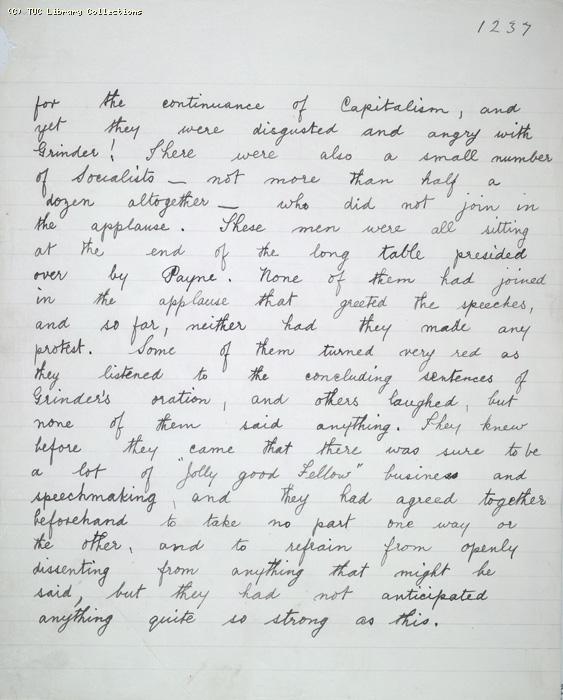 (C) TUC Library Collections
1237
for the continuance of Capitalism, and
yet they were disgusted and angry with
Grinder! There were also a small number
of Socialists — not more than half a
dozen altogether — who did not join in
the applause. These men were all sitting
at the end of the long table presided
over by Payne. None of them had joined
in the applause that greeted the speeches,
and so far, neither had they made any
protest. Some of them turned very red as
they listened to the concluding sentences of
Grinder's oration, and others laughed, but
none of them said anything. They knew
before they came that there was sure to be
a lot of "Jolly good Fellow" business and
speechmaking, and they had agreed together
beforehand to take no part one way or
the other, and to refrain from openly
dissenting from anything that might be
said, but they had not anticipated
anything quite so strong as this.